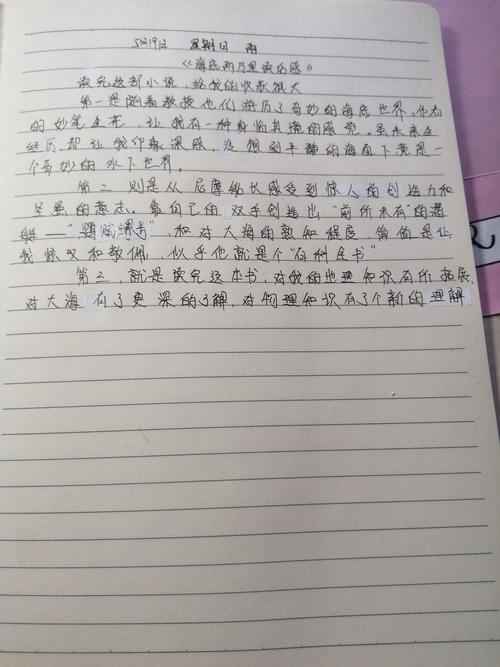 5月19日 星期日 雨
《海底两万里读后感》
读完这部小说，给我的收获很大
第一是随着教授他们游历了奇妙的海底世界。作者
的妙笔生花，让我有一种身临其境的感觉。虽未亲生
经历，却让我印象深感，没想到平静的海面下竟是一
个奇妙的水下世界。
第二，则是从尼摩船长感受到惊人的创造力和
坚毅的意志。靠自己的双手创造出"前所未有"的潜
艇——"鹦鹉螺号"，和对大海的熟知程度，简直是让
我惊叹和敬佩，似乎他就是个"百科全书"
第三，就是读完这本书，对我的地理知识有所拓展，
对大海有了更深的了解，对物理知识有了个新的理解
2